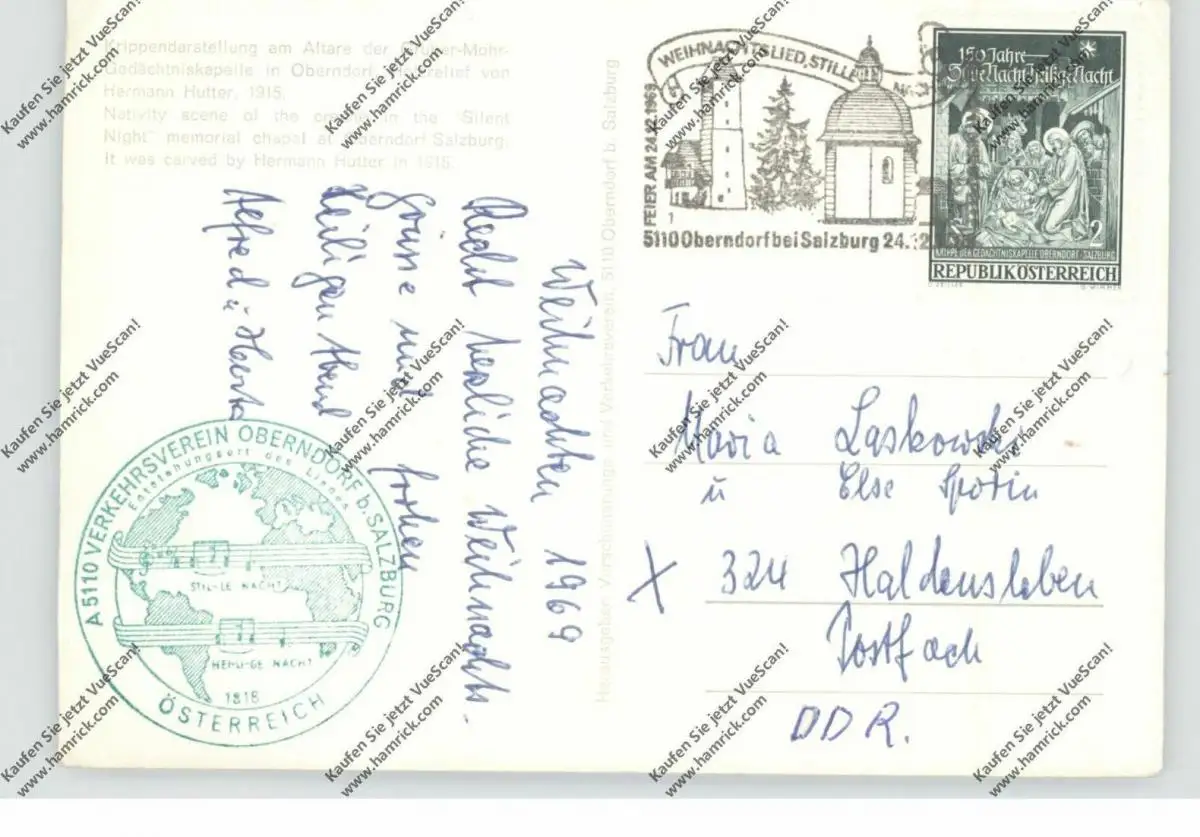 Krippendarstellung am Altare der Gruber-Mohr-
Gedächtniskapelle in Oberndorf. Holzrelief von
Hermann Hutter, 1915.
Nativity scene of the in the "Silent
Night" memorial chapel at Oberndorf/Salzburg.
It was carved by Hermann Hutter in 1915.
Weihnachten 1969
Recht herzliche Weihnachts-
grüsse und frohen
Heiligen Abend
Alfred u. Herta
A 5110 VERKEHRSVEREIN OBERNDORF b. SALZBURG
Entstehungsort des Liedes
STIL-LE NACHT
HEI-LI-GE NACHT
1818
ÖSTERREICH
Herausgeber: Verschönerungs- und Verkehrsverein, 5110 Oberndorf b. Salzburg
WEIHNACHTSLIED, STILLE
FEIER AM 24.12.1969
1
5110 Oberndorf bei Salzburg 24.12.
150 Jahre
Stille Nacht, Heilige Nacht
2
KRIPPE DER GEDÄCHTNISKAPELLE OBERNDORF-SALZBURG
REPUBLIK ÖSTERREICH
Frau
Maria Laskowski
u Else
324 Haldensleben
Postfach
DDR.
Kaufen Sie jetzt VueScan!
www.hamrick.com